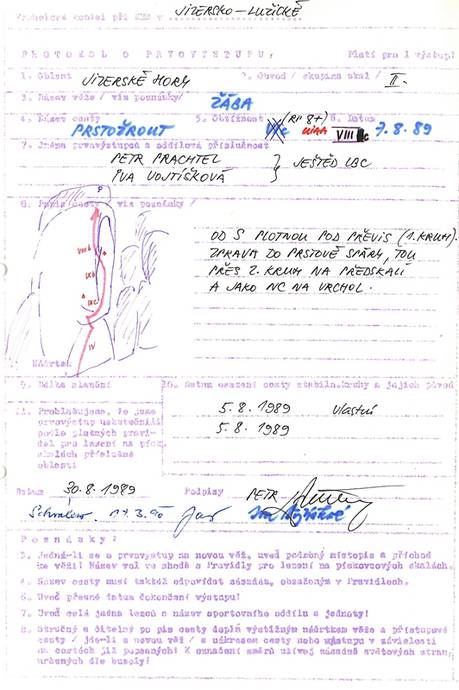 komisi při V JIZERSKO-LUŽICKÉ
PROTOKOL O PRVOVÝSTUPU: Platí pro 1 výstup!
1. Oblast JIZERSKÉ HORY 2. Obvod / skupina skal / II.
3. Název věže / viz poznámky/ ŽÁBA
4. Název cesty 5. Obtížnost (RP 8+) 6. Datum
PRSTOŽROUT UIAA VIII 7.8.89
7. Jména prvovýstupců a oddílová příslušnost
PETR PRACHTEL } JEŠTĚD LBC
IVA VOJTÍŠKOVÁ
8. Popis cesty - viz poznámky /
OD S PLOTNOU POD PŘEVIS (1. KRUH).
ZPRAVA DO PRSTOVÉ SPÁRY, TOU
PŘES 2. KRUH NA PŘEDSKALÍ
A JAKO NC NA VRCHOL.
IV
Náčrtek
9. Délka slanění 10. Datum osazení cesty stabiln.kruhy a jejich původ
11. Prohlašujeme, že jsme
prvovýstup uskutečnili
podle platných pravi-
del pro lezení na písk.
skalách příslušné
oblasti
5.8.1989 vlastní
5.8.1989
Datum 30.8.1989 Podpisy PETR
Poznámky:
3. Jedná-li se o prvovýstup na novou věž, uveď podrobný místopis a příchod
ke věži! Název vol ve shodě s Pravidly pro lezení na pískovcových skalách.
4. Název cesty musí taktéž odpovídat zásadám, obsaženým v Pravidlech.
6. Uveď přesné datum dokončení výstupu!
7. Uveď celá jména lezců a název sportovního oddílu a jednoty!
8. Stručný a čitelný popis cesty doplň výstižným náčrtkem věže a přístupové
cesty / jde-li o novou věž / a nákresem cesty nebo výstupu v závislosti
na cestách již popsaných! K označení směrů užívej zásadně světových stran,
určených dle busoly!